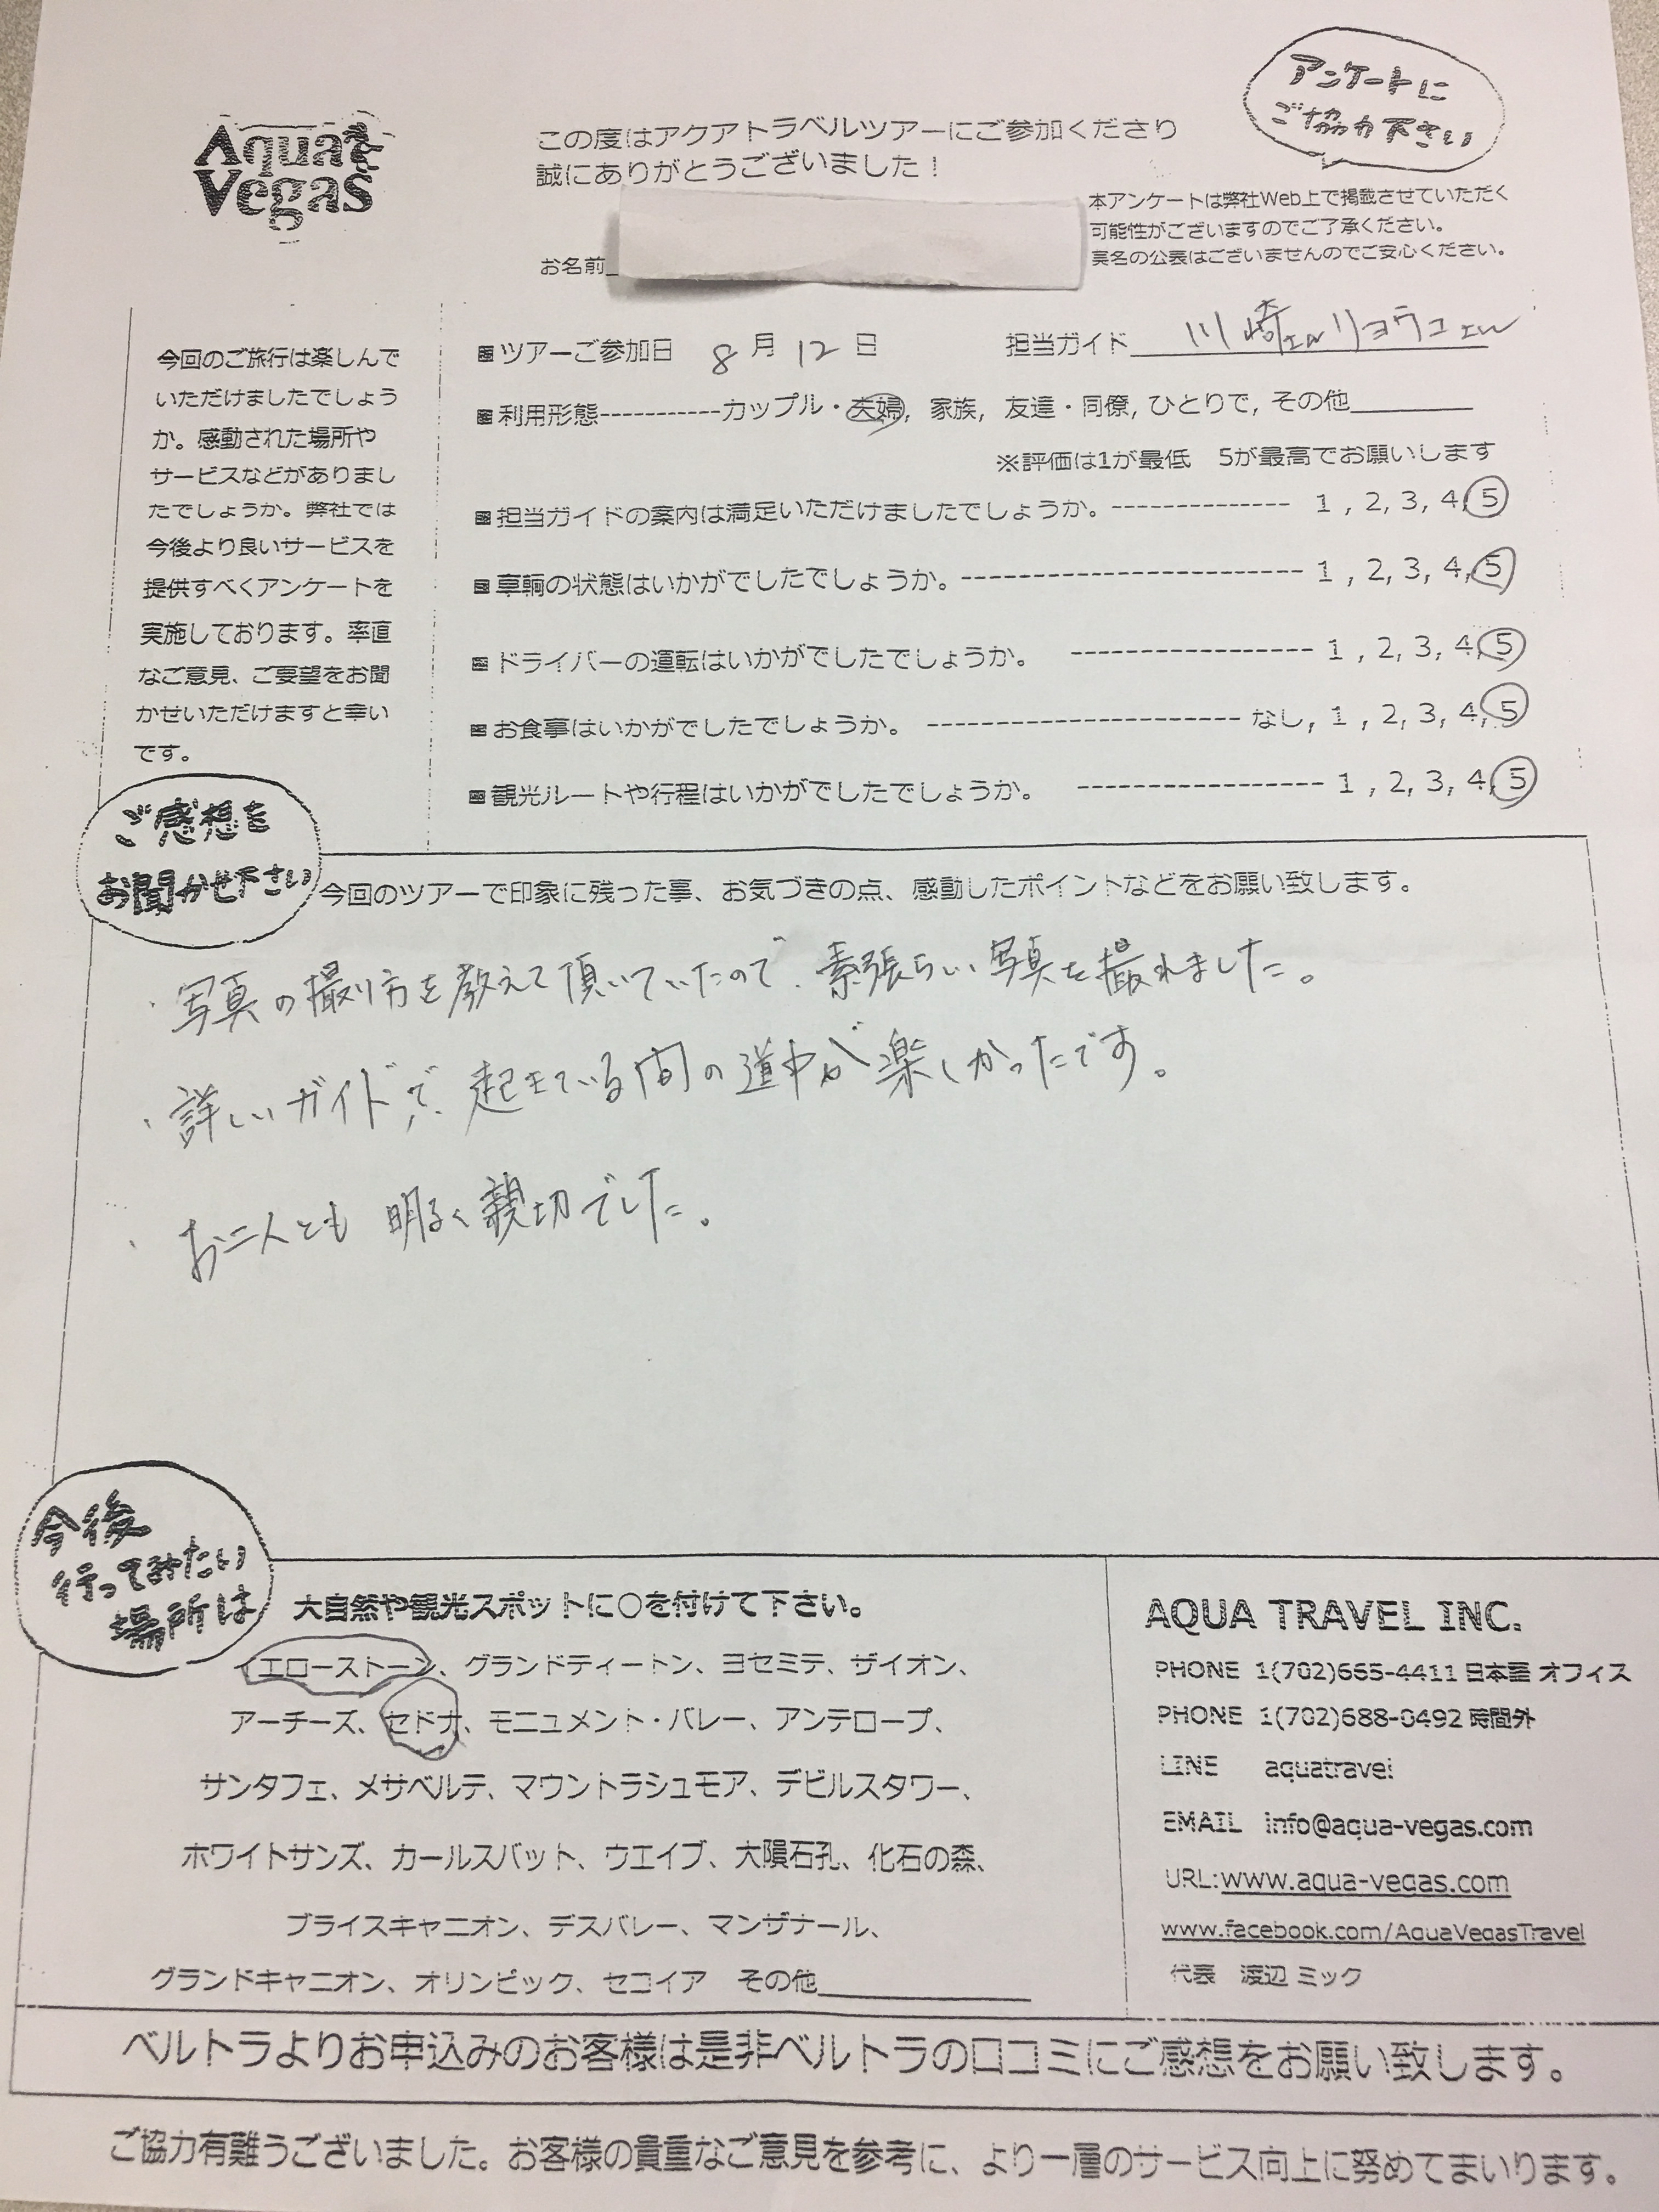 Aqua
Vegas
この度はアクアトラベルツアーにご参加くださり
誠にありがとうございました！
アンケートに
ご協力下さい
本アンケートは弊社Web上で掲載させていただく
可能性がございますのでご了承ください。
実名の公表はございませんのでご安心ください。
お名前
今回のご旅行は楽しんで
いただけましたでしょう
か。感動された場所や
サービスなどがありまし
たでしょうか。弊社では
今後より良いサービスを
提供すべくアンケートを
実施しております。率直
なご意見、ご要望をお聞
かせいただけますと幸い
です。
■ツアーご参加日 8月12日 担当ガイド 川崎 リョウコ
■利用形態-----------カップル・夫婦, 家族, 友達・同僚, ひとりで, その他
※評価は1が最低 5が最高でお願いします
■担当ガイドの案内は満足いただけましたでしょうか。-------------- 1 , 2, 3, 4, 5
■車輌の状態はいかがでしたでしょうか。--------------------------- 1 , 2, 3, 4, 5
■ドライバーの運転はいかがでしたでしょうか。 ----------------- 1 , 2, 3, 4, 5
■お食事はいかがでしたでしょうか。 ----------------------- なし, 1 , 2, 3, 4, 5
■観光ルートや行程はいかがでしたでしょうか。 ----------------- 1 , 2, 3, 4, 5
ご感想を
お聞かせ下さい
今回のツアーで印象に残った事、お気づきの点、感動したポイントなどをお願い致します。
・写真の撮り方を教えて頂いていたので、素張らしい写真を撮れました。
・詳しいガイドで、起きている間の道中が楽しかったです。
・お二人とも 明るく親切でした。
今後
行ってみたい
場所は
大自然や観光スポットに○を付けて下さい。
イエローストーン、グランドティートン、ヨセミテ、ザイオン、
アーチーズ、セドナ、モニュメント・バレー、アンテロープ、
サンタフェ、メサベルテ、マウントラシュモア、デビルスタワー、
ホワイトサンズ、カールスバット、ウエイブ、大隕石孔、化石の森、
ブライスキャニオン、デスバレー、マンザナール、
グランドキャニオン、オリンピック、セコイア その他
AQUA TRAVEL INC.
PHONE 1(702)665-4411 日本語 オフィス
PHONE 1(702)688-0492 時間外
LINE aquatravel
EMAIL info@aqua-vegas.com
URL:www.aqua-vegas.com
www.facebook.com/AquaVegasTravel
代表 渡辺 ミック
ベルトラよりお申込みのお客様は是非ベルトラの口コミにご感想をお願い致します。
ご協力有難うございました。お客様の貴重なご意見を参考に、より一層のサービス向上に努めてまいります。